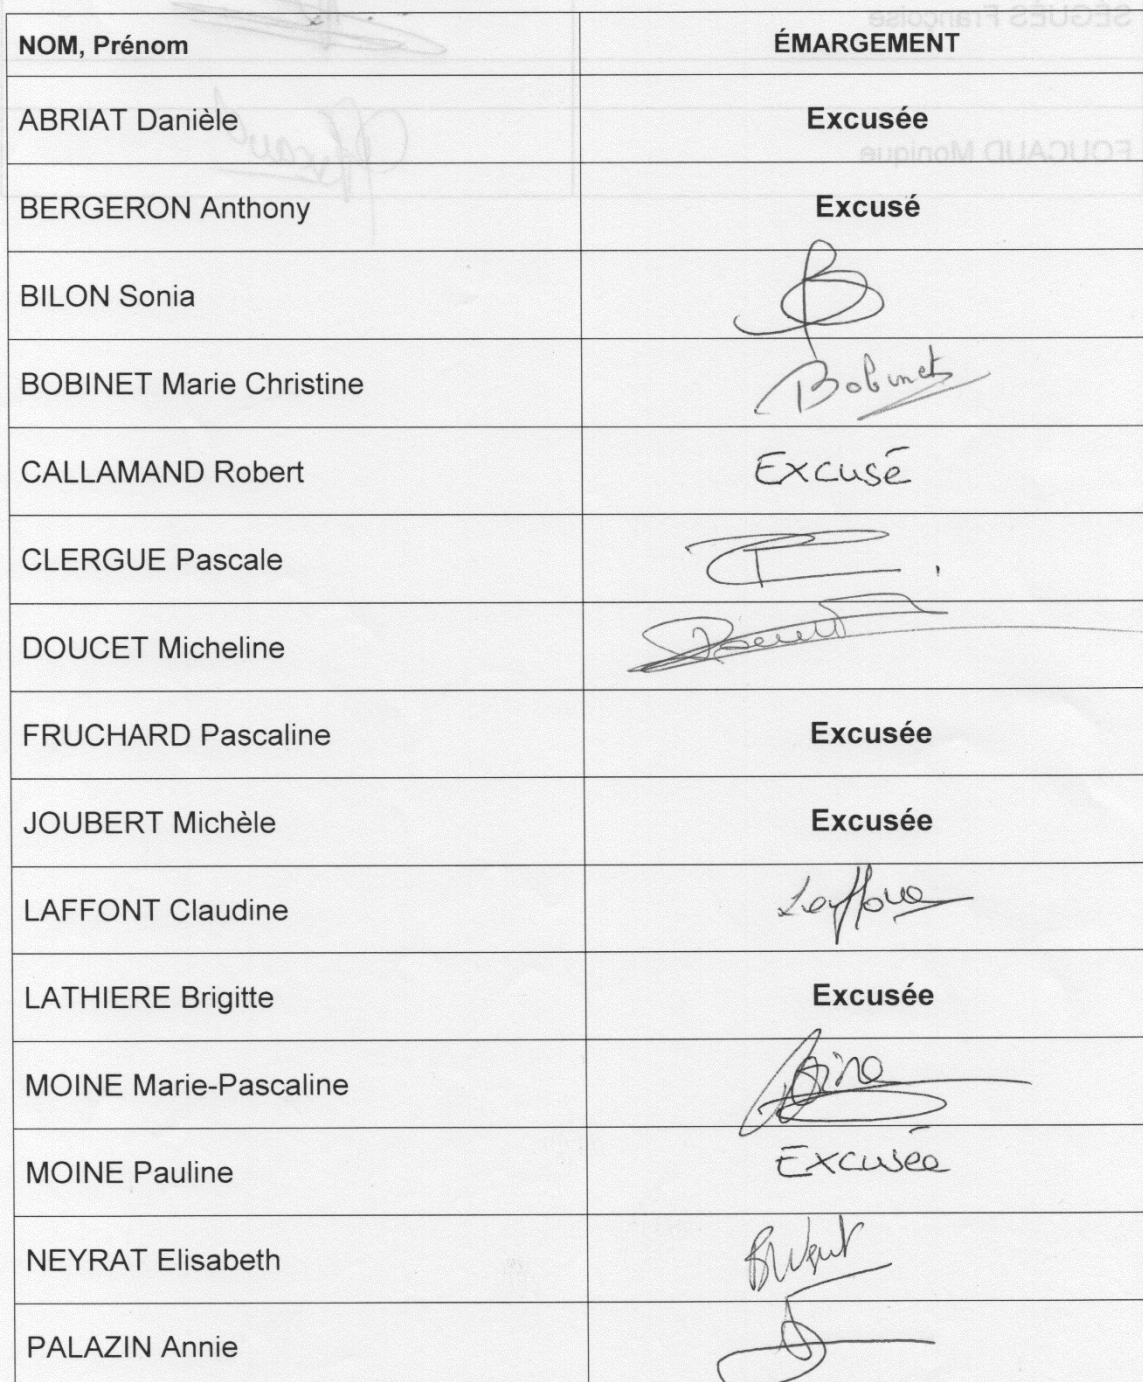 SÉGUÉS Françoise
NOM, Prénom ÉMARGEMENT
ABRIAT Danièle Excusée
FOUCAUD Monique
BERGERON Anthony Excusé
BILON Sonia
BOBINET Marie Christine Bobinet
CALLAMAND Robert Excusé
CLERGUE Pascale
DOUCET Micheline
FRUCHARD Pascaline Excusée
JOUBERT Michèle Excusée
LAFFONT Claudine
LATHIERE Brigitte Excusée
MOINE Marie-Pascaline
MOINE Pauline Excusée
NEYRAT Elisabeth
PALAZIN Annie